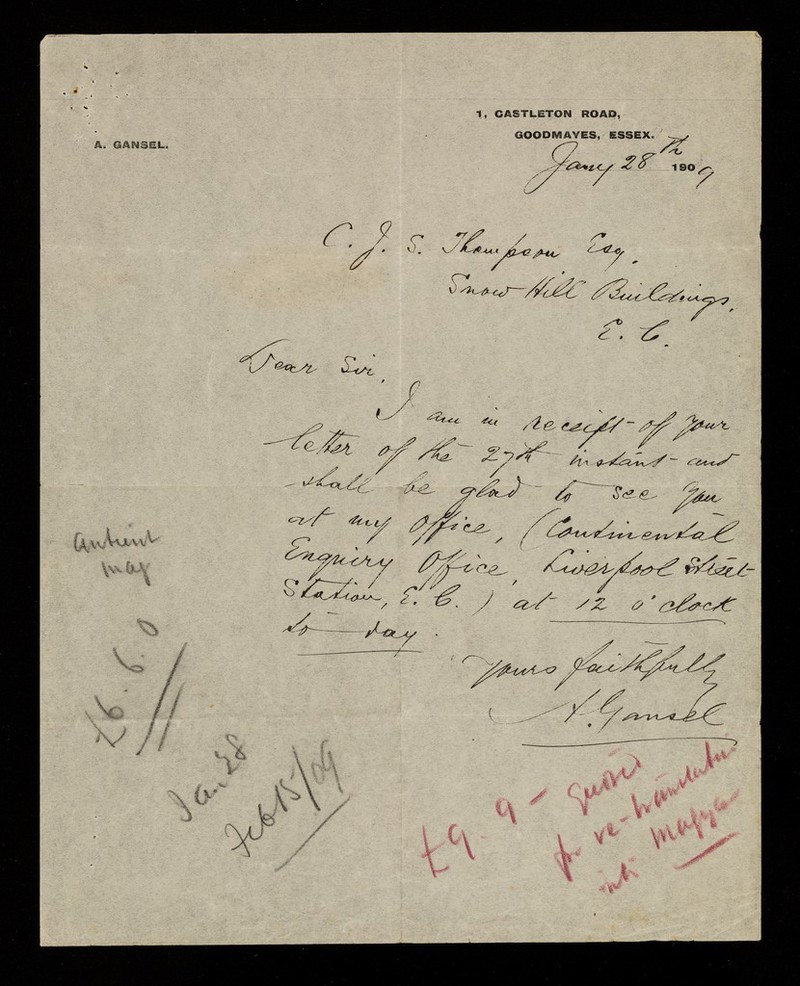 1, CASTLETON ROAD,
GOODMAYES, ESSEX.
A. GANSEL.
Jany 28th 1909
C. J. S. Thompson Esq.
Snow Hill Buildings.
E. C.
Dear Sir,
I am in receipt of your
letter of the 27th instant and
shall be glad to see you
at my Office, (Continental
Enquiry Office, Liverpool Street
Station, E. C.) at 12 o'clock
to day.
Yours faithfully
A. Gansel
£6.6.0
Jan. 28
Feb 15/09
£9.9 - quoted
for re-translation
into Magyar